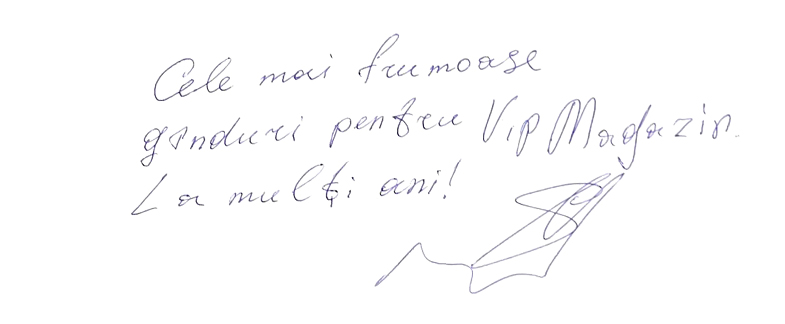 Cele mai frumoase
gînduri pentru Vip Magazin.
La mulți ani!